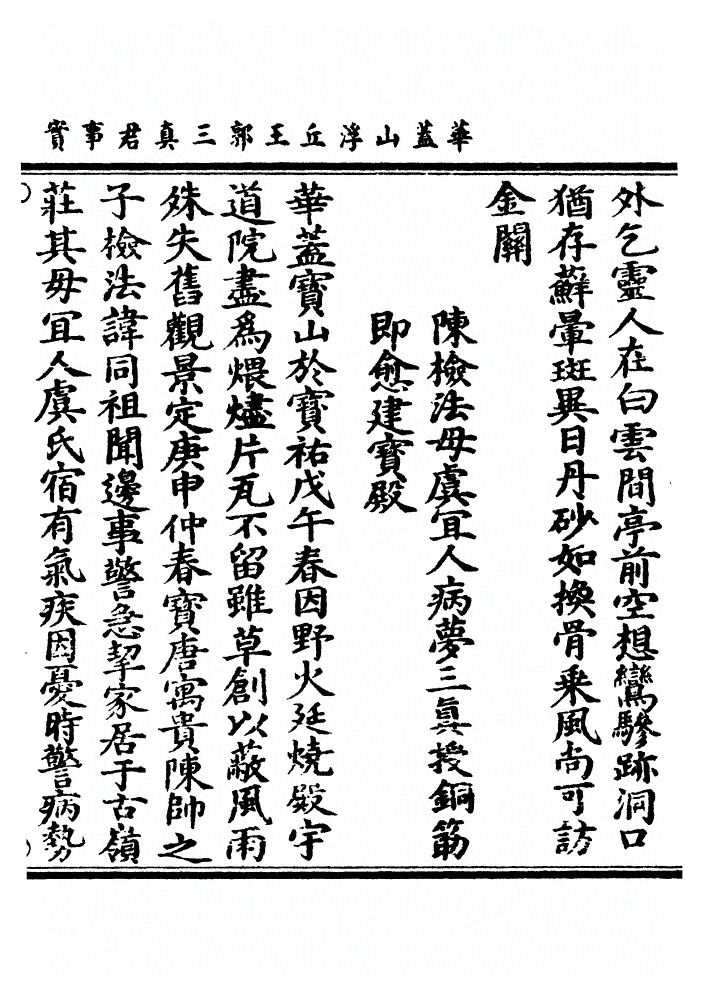 華蓋山浮丘王郭三真君事實
外乞靈人在白雲間亭前空想鸞驂跡洞口
猶存蘚暈斑異日丹砂如換骨乘風尚可訪
金關
陳檢法母虞冝人病夢三眞授銅筯
即愈建寶殿
華蓋寶山於寶祐戊午春因野火延燒殿宇
道院盡爲煨燼片瓦不留雖草創以蔽風雨
殊失舊觀景定庚申仲春寶唐寓貴陳帥之
子檢法諱同祖聞邊事警急挈家居于古嶺
莊其母冝人虞氏宿有氣疾因憂時警病勢